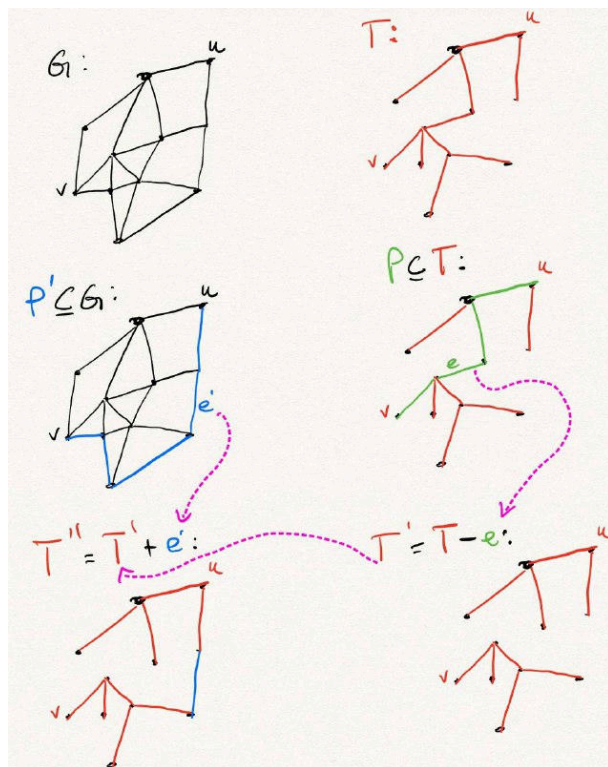 G:
u
v
T:
u
v
P' ⊆ G:
u
e'
v
P ⊆ T:
u
e
v
T'' = T' + e':
u
v
T' = T - e:
u
v